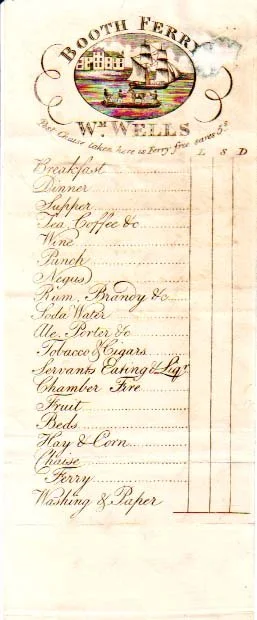 BOOTH FERRY
Wm. WELLS
Post Chaise taken here is Ferry free saves 5s
L S D
Breakfast
Dinner
Supper
Tea, Coffee &c
Wine
Punch
Negus
Rum, Brandy &c
Soda Water
Ale, Porter &c
Tobacco & Cigars
Servants Eating & Liqr
Chamber Fire
Fruit
Beds
Hay & Corn
Chaise
Ferry
Washing & Paper